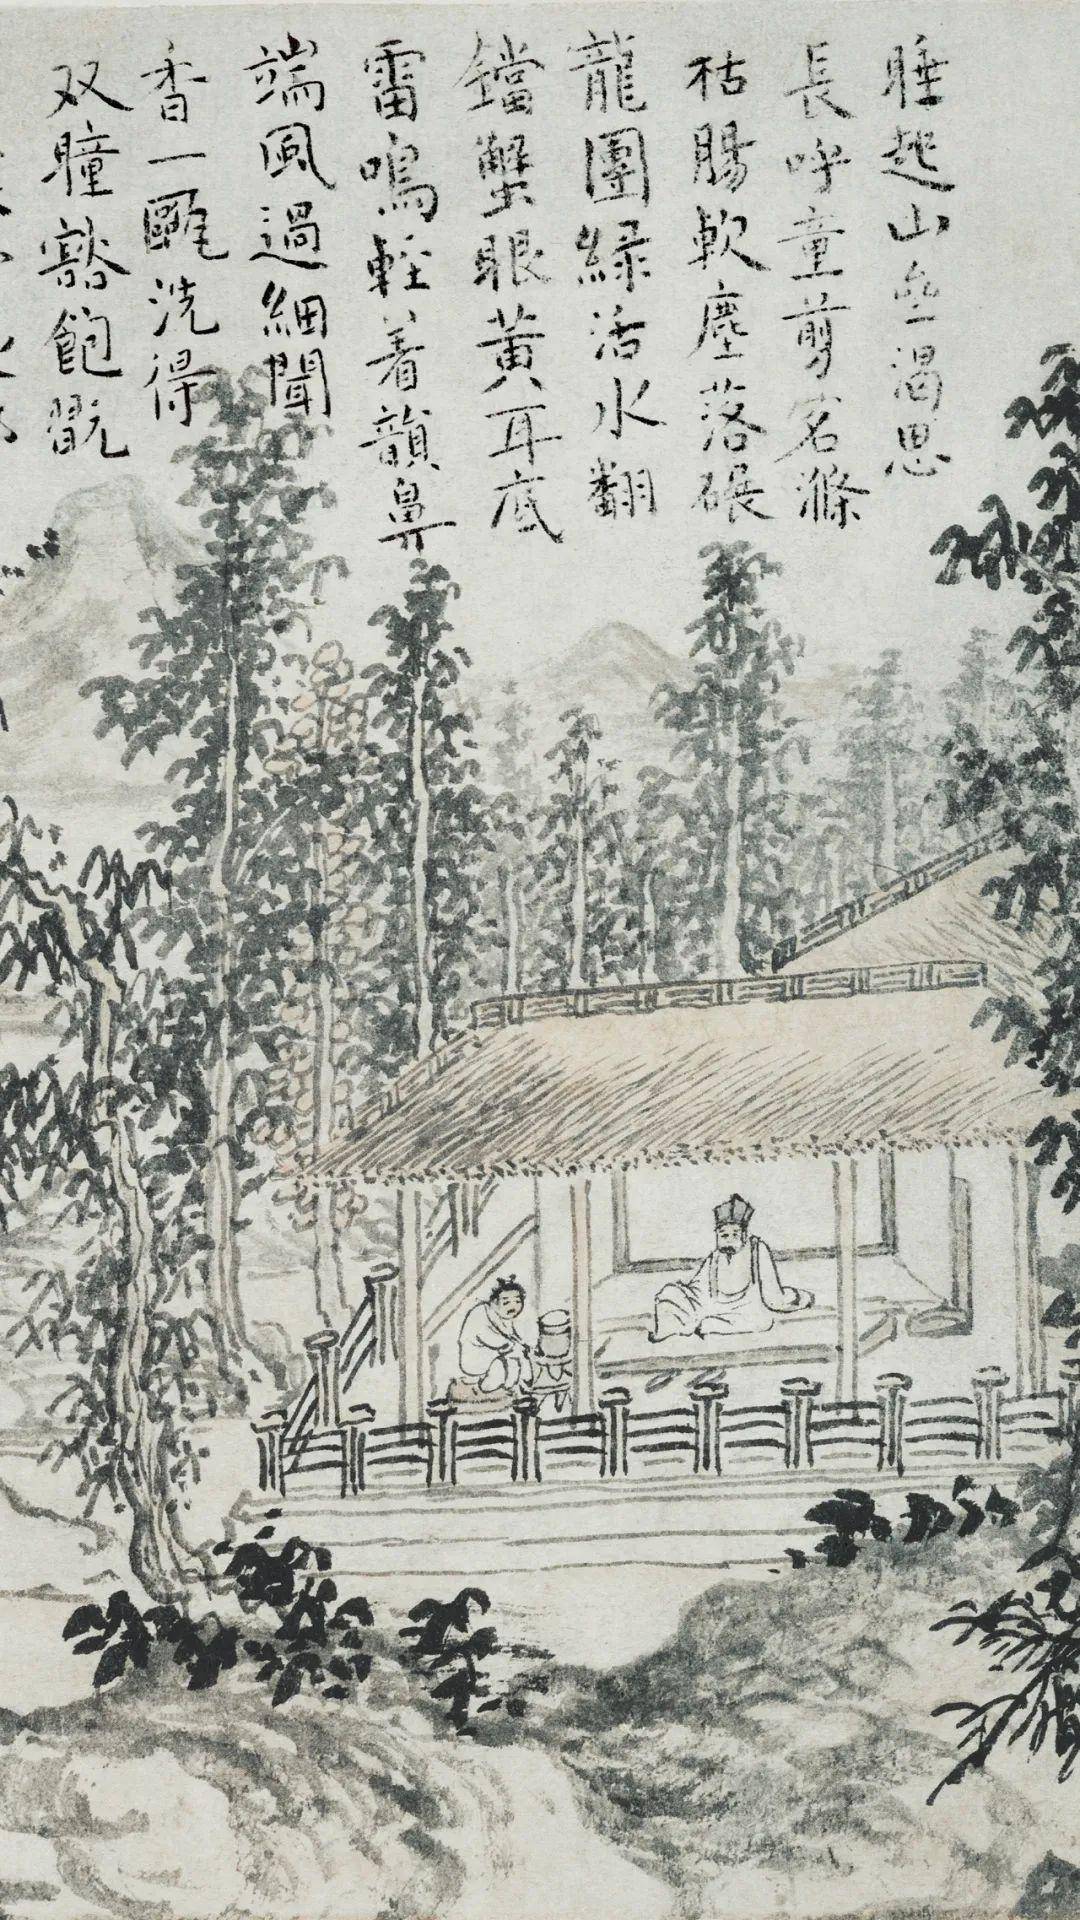 睡起山亝渴思
長呼童剪茗滌
枯腸軟塵落碾
龍團綠活水翻
鐺蟹眼黄耳底
雷鳴輕着韻鼻
端風過細聞
香一甌洗得
双瞳豁飽翫